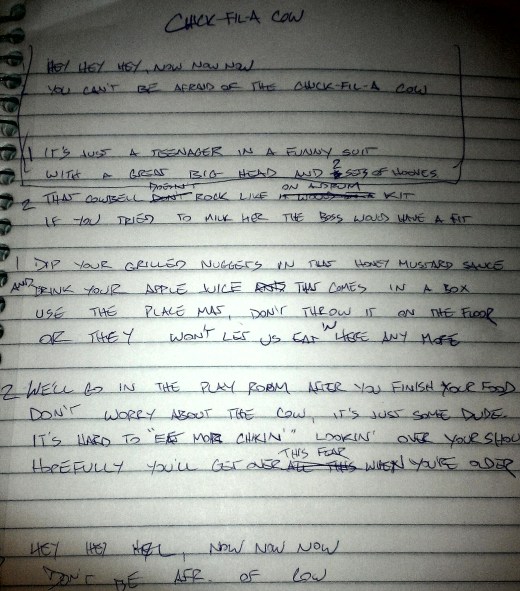 CHICK-FIL-A COW
HEY HEY HEY, NOW NOW NOW
YOU CAN'T BE AFRAID OF THE CHICK-FIL-A COW
1 IT'S JUST A TEENAGER IN A FUNNY SUIT
WITH A GREAT BIG HEAD AND 2 SETS OF HOOVES
2 THAT COWBELL DOESN'T ROCK LIKE ON A DRUM KIT
IF YOU TRIED TO MILK HER THE BOSS WOULD HAVE A FIT
1 DIP YOUR GRILLED NUGGETS IN THAT HONEY MUSTARD SAUCE
AND DRINK YOUR APPLE JUICE THAT COMES IN A BOX
USE THE PLACE MAT, DON'T THROW IT ON THE FLOOR
OR THEY WON'T LET US EAT HERE ANY MORE
2 WE'LL GO IN THE PLAY ROOM AFTER YOU FINISH YOUR FOOD
DON'T WORRY ABOUT THE COW, IT'S JUST SOME DUDE
IT'S HARD TO "EAT MOR CHIKIN'" LOOKIN' OVER YOUR SHOU
HOPEFULLY YOU'LL GET OVER THIS FEAR WHEN YOU'RE OLDER
HEY HEY HEY, NOW NOW NOW
DON'T BE AFR. OF COW